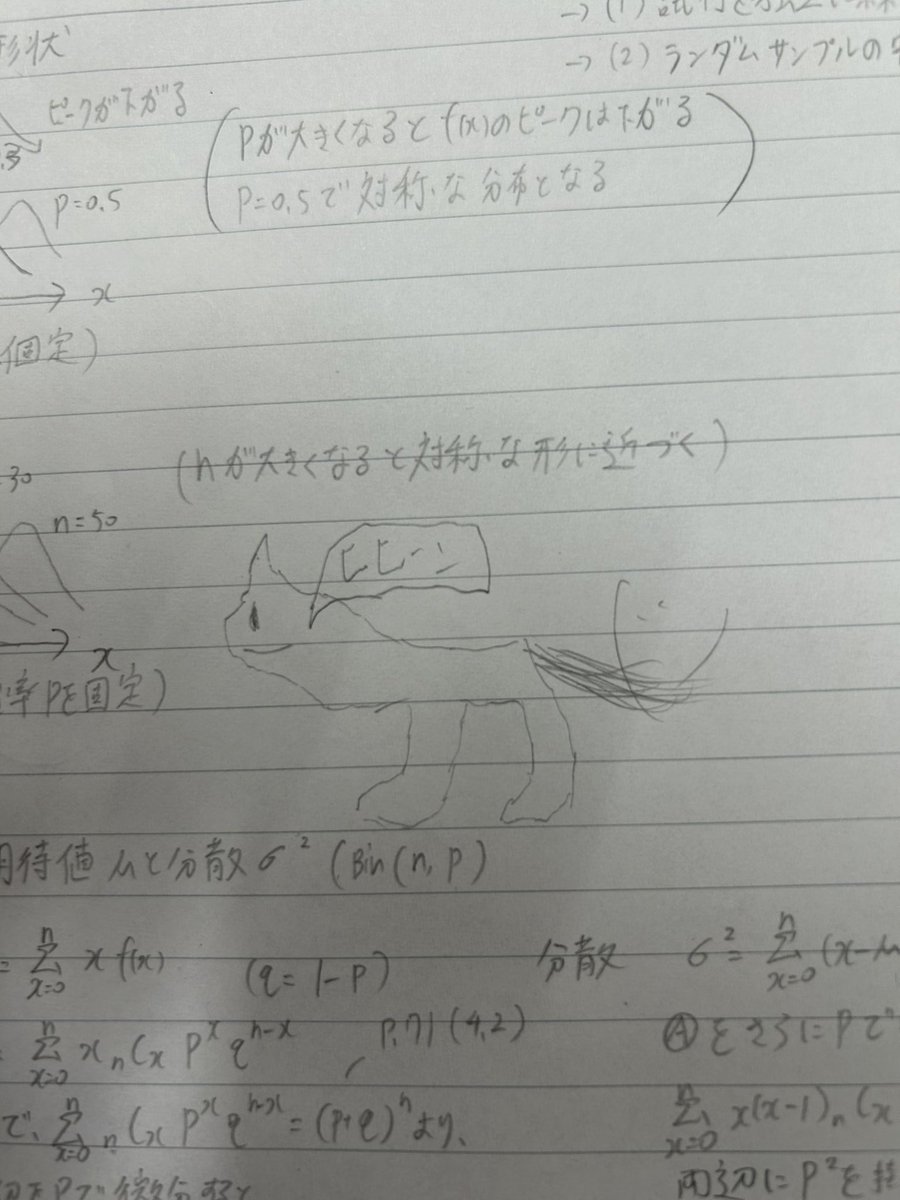 形状
ピークが下がる
→ (2) ランダムサンプルの
Pが大きくなると f(x)のピークは下がる
P=0.5で対称な分布となる
P=0.5
x
固定)
(nが大きくなると対称な形に近づく)
30
n=50
ヒヒーン
x
率Pを固定)
期待値 μと分散σ² (Bin(n, P)
= Σ[x=0→n] x f(x) (q=1-P)
分散 σ² = Σ[x=0→n] (x-μ
Σ[x=0→n] x nCx P^x q^(n-x)
P.71 (4.2)
Ⓐをさらに Pで
で、Σ[x=0→n] nCx P^x q^(n-x) = (P+q)^n より、
Σ[x=0→n] x(x-1) nCx
両辺に P²を
Pで微分すると